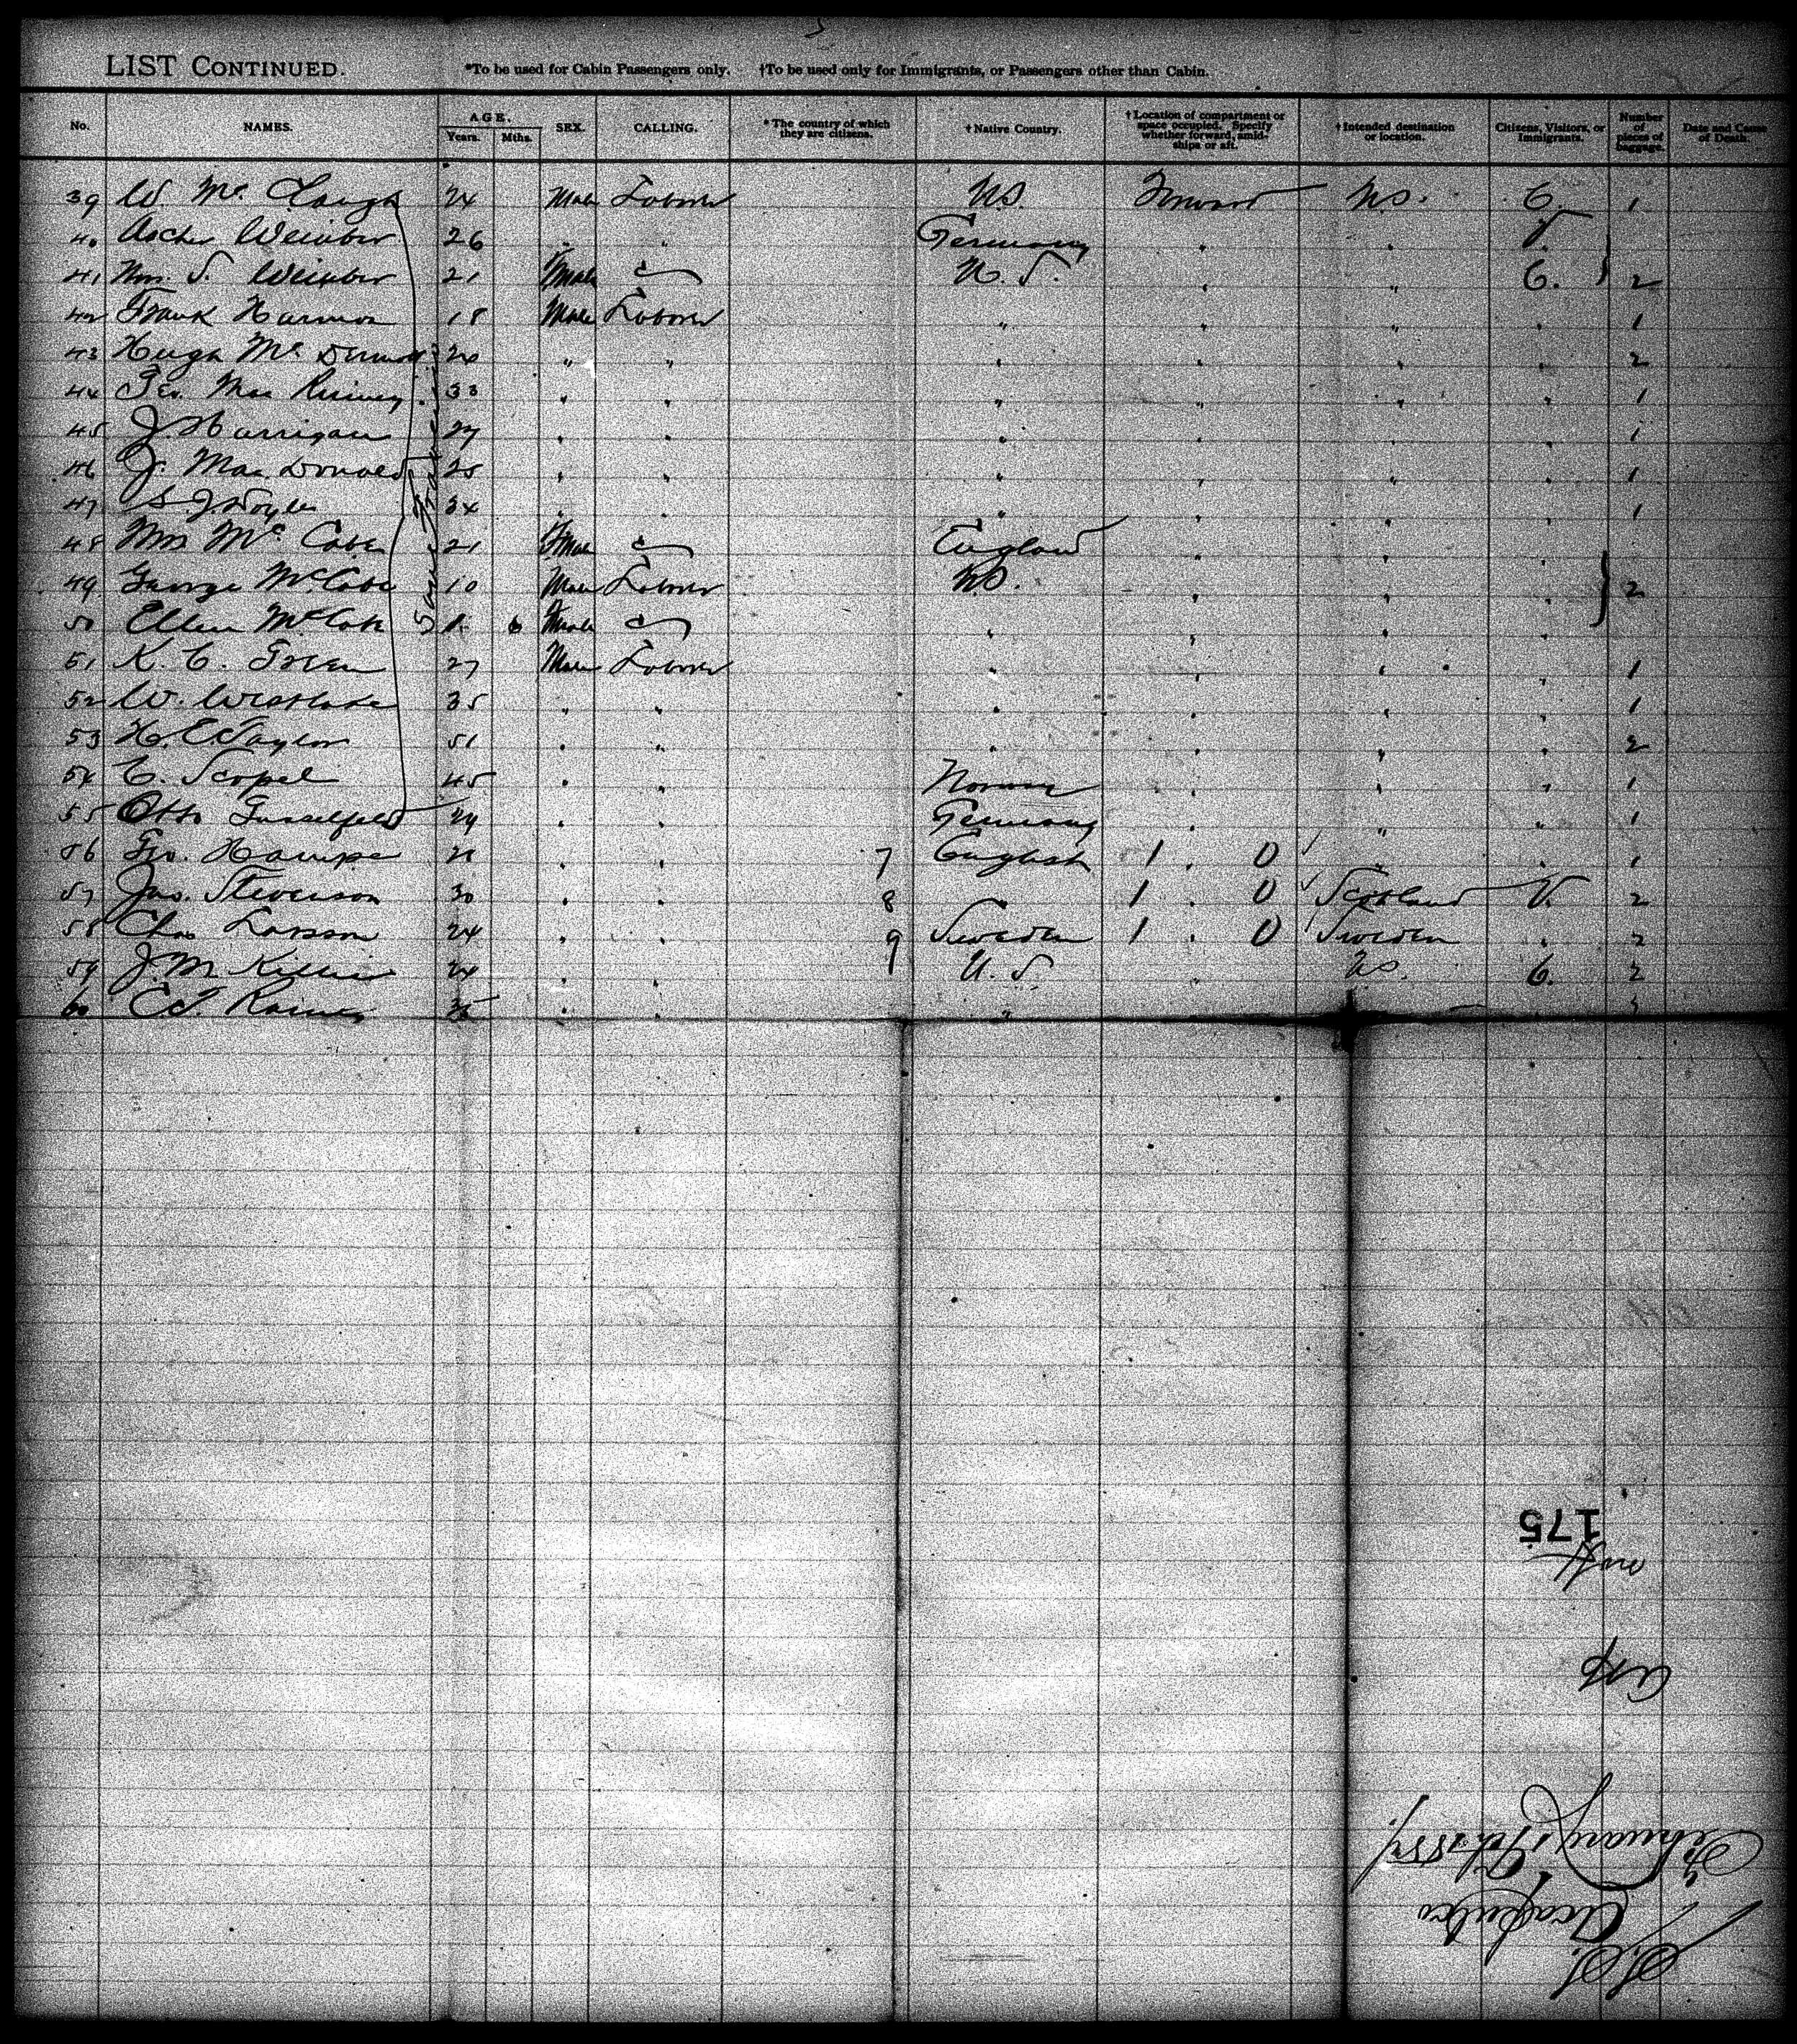 LIST CONTINUED. *To be used for Cabin Passengers only. †To be used only for Immigrants, or Passengers other than Cabin.
No. NAMES. AGE. Years. Mths. SEX. CALLING. * The country of which they are citizens. † Native Country. † Location of compartment or space occupied. Specify whether forward, amidships or aft. † Intended destination or location. Citizens, Visitors, or Immigrants. Number of pieces of baggage. Date and Cause of Death.
39 W Mc 24 Male Laborer U.S. Forward U.S. C. 1
40 Ascher 26 " " Germany " " V.
41 S. 21 Female U.S. " " C. } 2
42 Frank Harmon 18 Male Laborer " " " " 1
43 Hugh McDermott 20 " " " " " " 2
44 Geo. Mac 33 " " " " " " 1
45 J. Harrigan 27 " " " " " " 1
46 J. MacDonald 25 " " " " " " 1
47 S. J Doyle 34 " " " " " " 1
48 Mrs McCabe 21 Female England " " "
49 George McCabe 10 Male Laborer U.S. " " " } 2
50 Ellen McCabe 6 Female " " " "
51 K. C. Green 27 Male Laborer " " " " 1
52 W. Westlake 35 " " " " " " 1
53 H. E. Taylor 51 " " " " " " 2
54 C. Scopel 45 " " Norway " " " 1
55 Otto 24 " " Germany " " " 1
56 Geo. Hampe 21 " " 7 English 1 . 0 " " 1
57 Jas. Stevenson 30 " " 8 1 . 0 Scotland V. 2
58 Chas Larsson 24 " " 9 Sweden 1 . 0 Sweden " 2
59 J. M. 24 " " U.S. " U.S. C. 2
60 35 " " "
175
S.S.
Acapulco
February 17th